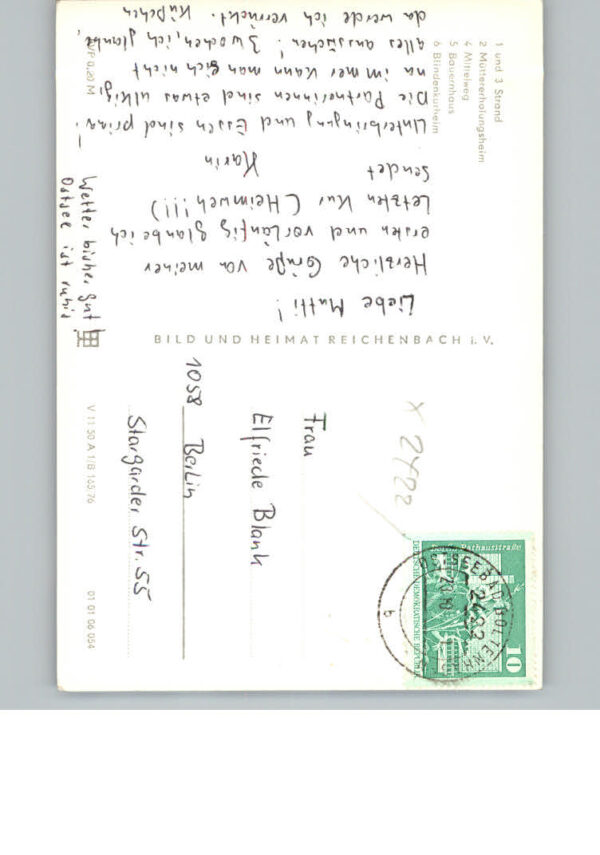 Liebe Mutti!
Herzliche Grüße von meiner
ersten und vorläufig glaube ich
Letzten Kur (Heimweh!!!)
sendet
Karin
Unterbringung und Essen sind prima!
Die Partnerinnen sind etwas ulkig,
na immer kann man sich nicht
alles aussuchen! 3 Wochen, ich glaube,
da werde ich verrückt. Küßchen
Wetter bisher gut!
Ostsee ist ruhig
1 und 3 Strand
2 Müttererholungsheim
4 Mittelweg
5 Bauernhaus
6 Blindenkurheim
EVP 0,20 M
BILD UND HEIMAT REICHENBACH i. V.
V 11 50 A 1/B 165/76
01 01 06 054
Frau
Elfriede Blank
1058 Berlin
Stargarder Str. 55
x 2422
Berlin, Rathausstraße
DEUTSCHE DEMOKRATISCHE REPUBLIK
10
OSTSEEBAD BOLTENH
2422
b